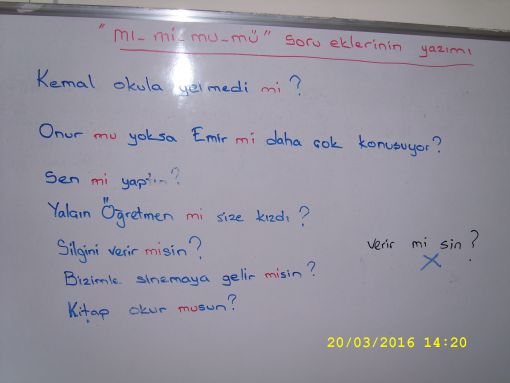 "mı_mi_mu_mü" soru eklerinin yazımı
Kemal okula gelmedi mi?
Onur mu yoksa Emir mi daha çok konuşuyor?
Sen mi yaptın?
Yalçın Öğretmen mi size kızdı?
Silgini verir misin?
verir mi sin?
X
Bizimle sinemaya gelir misin?
Kitap okur musun?
20/03/2016 14:20